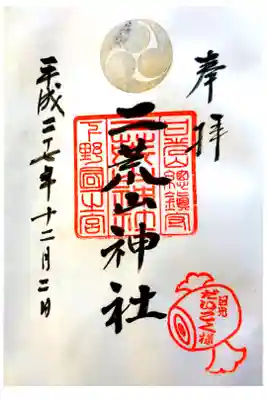 奉拝
日光山總鎮守
二荒山神社
下野國一宮
平成二十七年十二月二日
日光
だいこく様